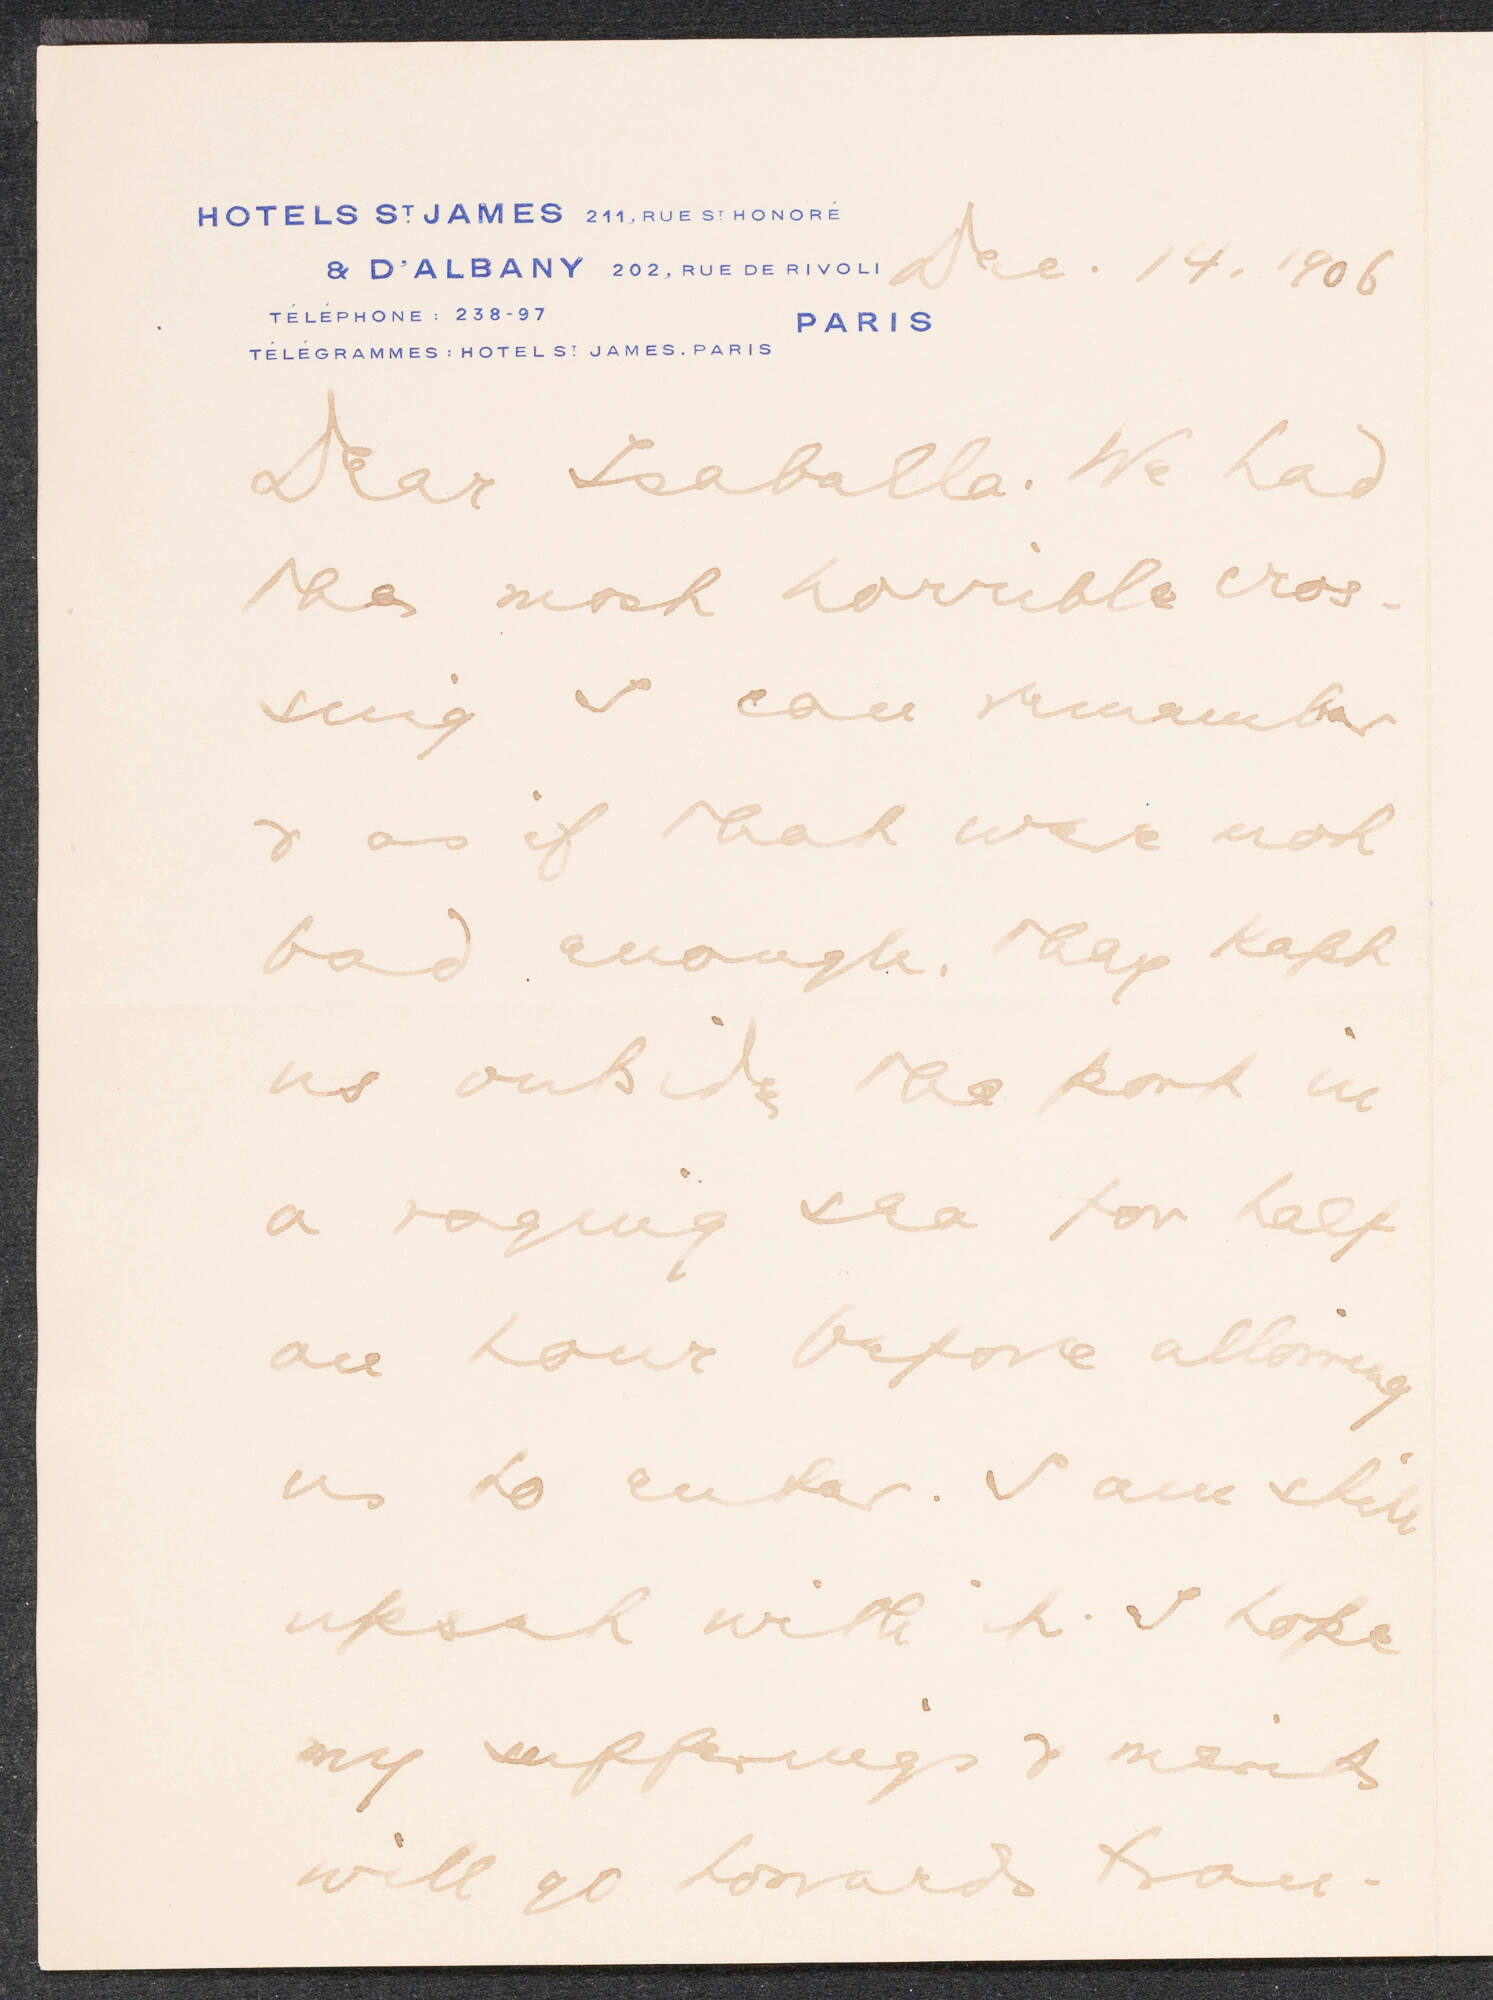 HOTELS ST JAMES 211, RUE ST HONORÉ
& D'ALBANY 202, RUE DE RIVOLI
Dec. 14. 1906
TÉLÉPHONE : 238-97
PARIS
TÉLÉGRAMMES : HOTEL ST JAMES. PARIS
Dear Isabella. We had
the most horrible cros-
sing I can remember
& as if that were not
bad enough, they kept
us outside the port in
a raging sea for half
an hour before allowing
us to enter. I am still
upset with it. I hope
my sufferings & merits
will go towards tran-